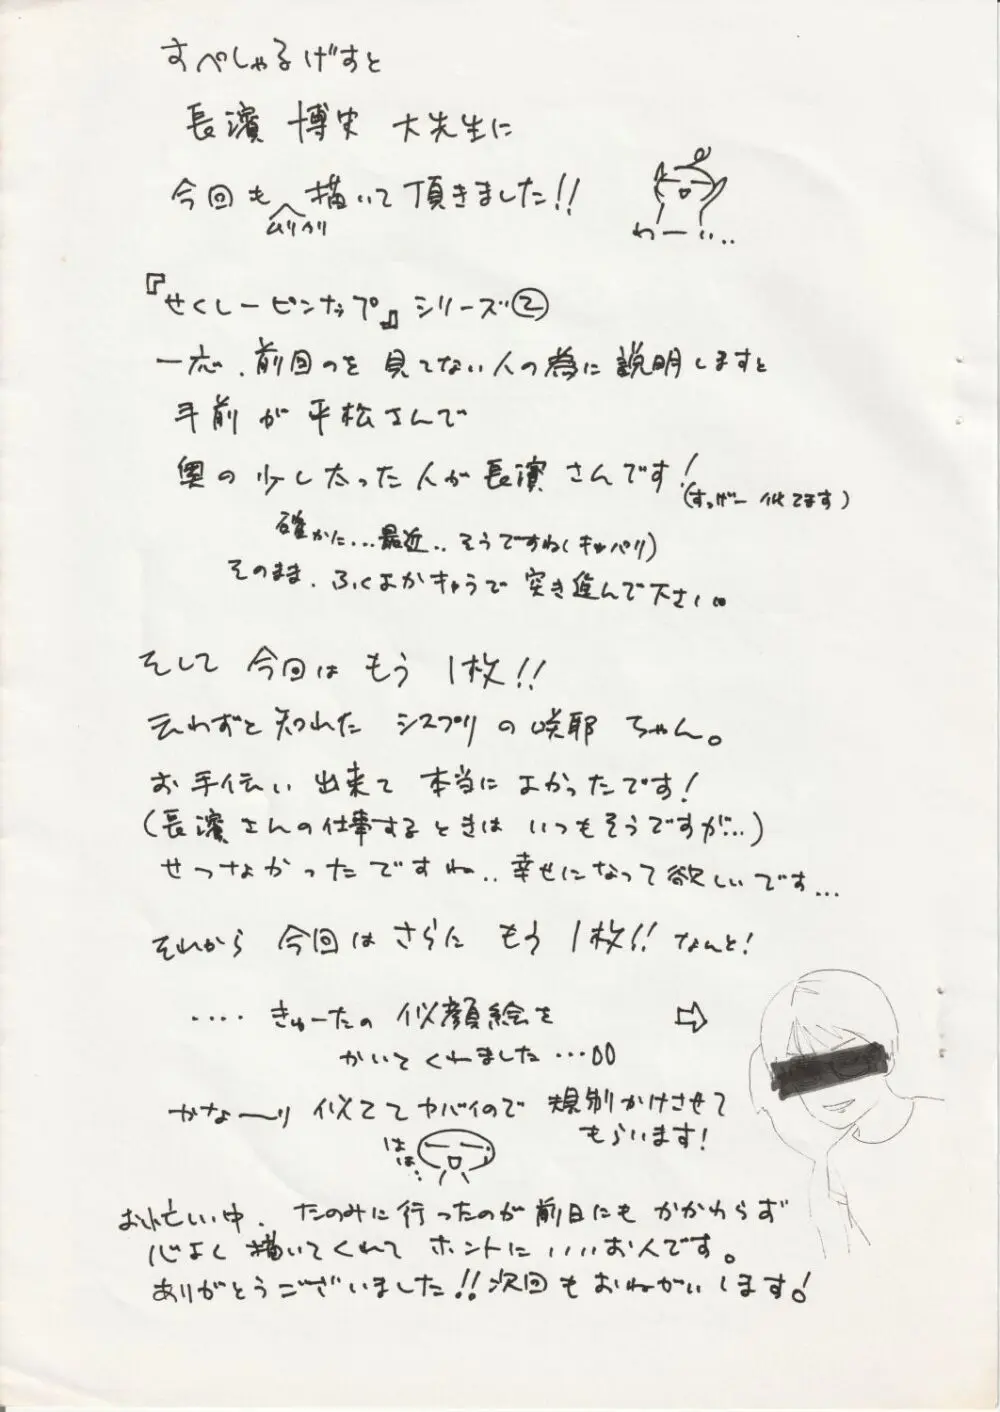 すぺしゃるげすと
長濱 博史 大先生に
今回も ムリヤリ 描いて頂きました!!
わーい..
『せくしーピンナップ』シリーズ②
一応、前回のを見てない人の為に説明しますと
手前が平松さんで
奥の少し太った人が長濱さんです!
(すっげー 似てます)
確かに...最近..そうですね(キッパリ)
そのまま、ふくよかキャラで突き進んで下さい。
そして今回はもう1枚!!
云わずと知れた シスプリの咲耶ちゃん。
お手伝い出来て本当によかったです!
(長濱さんの仕事するときはいつもそうですが...)
せつなかったですね..幸せになって欲しいです...
それから 今回はさらに もう1枚!! なんと!
....きゅーたの似顔絵を ⇨
かいてくれました...
かな〜り似ててヤバイので 規制かけさせて
もらいます!
はは..
お忙しい中、たのみに行ったのが前日にもかかわらず
心よく描いてくれてホントにいいお人です。
ありがとうございました!!次回もおねがいします!